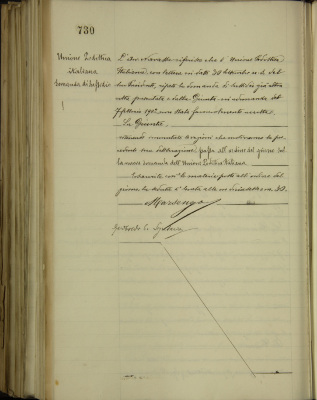 730
Unione Podistica
italiana
domanda di sussidio
riferisce che l'Unione Podistica
Italiana con lettera in data 30 Settembre u. s. del
suo Presidente, ripete la domanda di sussidio già altra
volta presentata e dalla Giunta in adunanza del
7 febbraio non stata favorevolmente accolta.
La Giunta
ritenuto immutate le ragioni che motivarono la pre-
cedente sua deliberazione passa all'ordine del giorno sul-
la nuova domanda dell'Unione Podistica Italiana.
Esaurite così le materie poste all'ordine del
giorno la seduta è levata alle ore
Marsengo